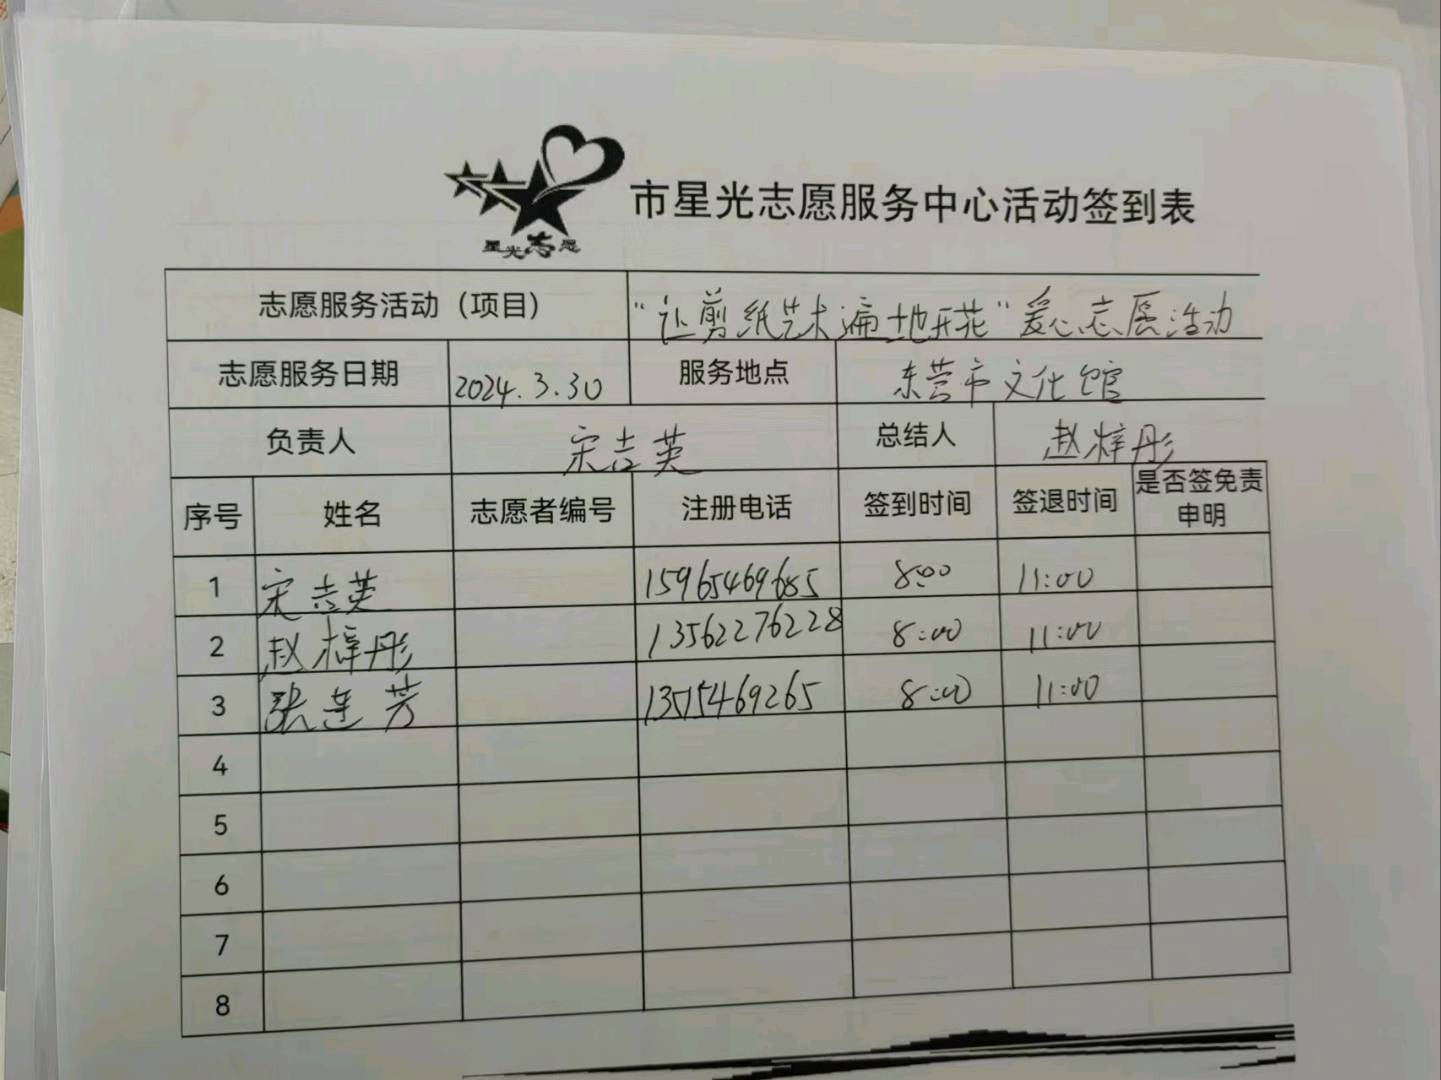 星光志愿
市星光志愿服务中心活动签到表
志愿服务活动（项目） “让剪纸艺术遍地开花”爱心志愿活动
志愿服务日期 2024.3.30 服务地点 东营市文化馆
负责人 宋吉英 总结人 赵梓彤
序号 姓名 志愿者编号 注册电话 签到时间 签退时间 是否签免责申明
1 宋吉英 15965469685 8:00 11:00
2 赵梓彤 13562276228 8:00 11:00
3 张莲芳 13515469265 8:00 11:00
4
5
6
7
8